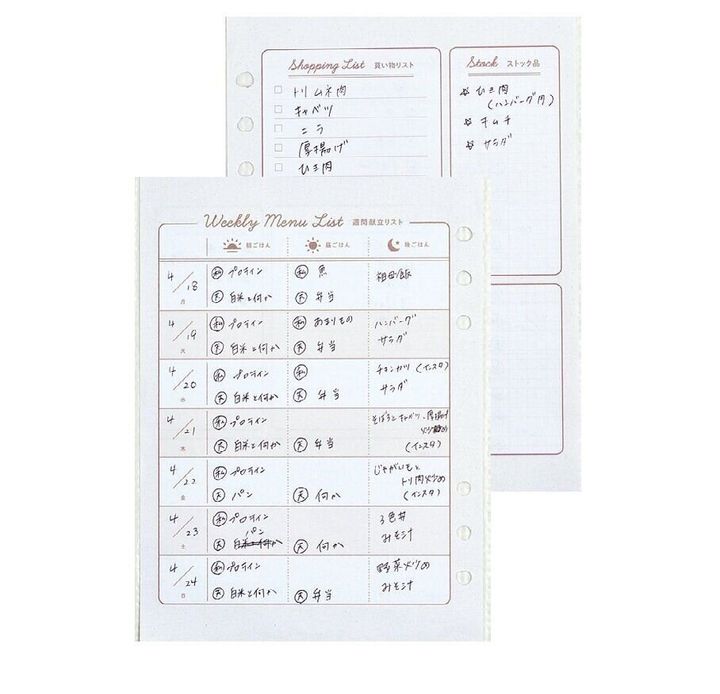 Shopping List 買い物リスト
トリムネ肉
キャベツ
ニラ
厚揚げ
ひき肉
Stock ストック品
☆ ひき肉
(ハンバーグ用)
☆ キムチ
☆ サラダ
Weekly Menu List 週間献立リスト
朝ごはん 昼ごはん 晩ごはん
4/18 月
私 プロテイン 私 魚 祖母飯
夫 白米と何か 夫 弁当
4/19 火
私 プロテイン 私 あまりもの ハンバーグ
夫 白米と何か 夫 弁当 サラダ
4/20 水
私 プロテイン 私 チキンカツ (インスタ)
夫 白米と何か 夫 弁当 サラダ
4/21 木
私 プロテイン そぼろとキャベツ、厚揚げ
夫 白米と何か 夫 弁当 (インスタ)
4/22 金
私 プロテイン じゃがいもと
トリ肉炒め
夫 パン 夫 何か (インスタ)
4/23 土
私 プロテイン 3色丼
パン
夫 白米と何か 夫 何か みそ汁
4/24 日
私 プロテイン 野菜炒め
夫 白米と何か 夫 弁当 みそ汁